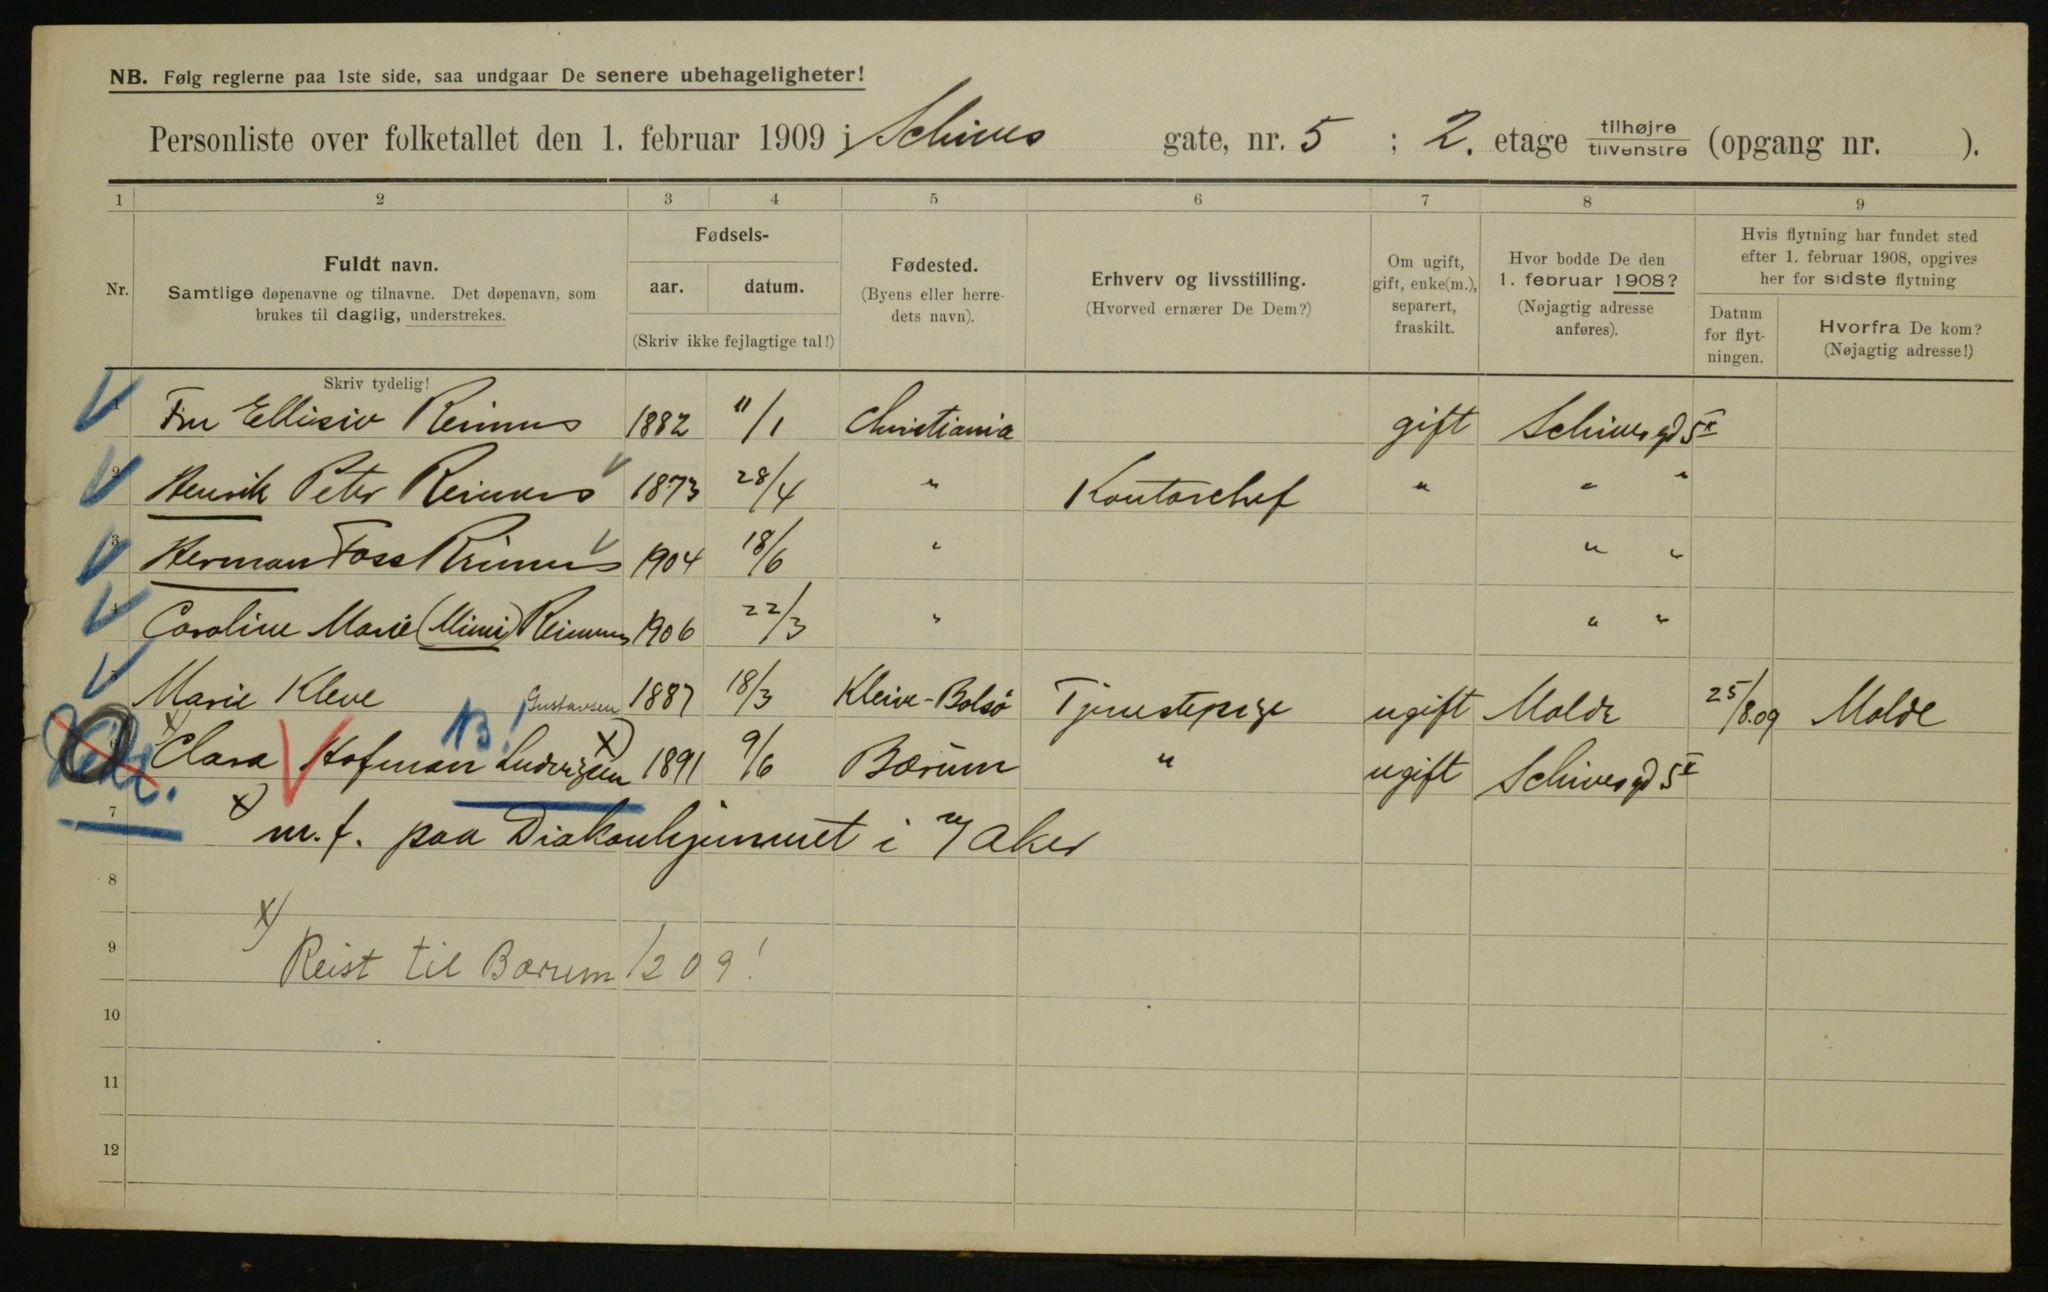 NB. Følg reglerne paa 1ste side, saa undgaar De senere ubehageligheter!
Personliste over folketallet den 1. februar 1909 i Schives gate, nr. 5 ; 2. etage tilhøjre tilvenstre (opgang nr. ).
1 2 3 4 5 6 7 8 9
Nr.
Fuldt navn.
Samtlige døpenavne og tilnavne. Det døpenavn, som
brukes til daglig, understrekes.
Skriv tydelig!
Fødsels-
aar. datum.
(Skriv ikke fejlagtige tal!)
Fødested.
(Byens eller herre-
dets navn).
Erhverv og livsstilling.
(Hvorved ernærer De Dem?)
Om ugift,
gift, enke(m.),
separert,
fraskilt.
Hvor bodde De den
1. februar 1908?
(Nøjagtig adresse
anføres).
Hvis flytning har fundet sted
efter 1. februar 1908, opgives
her for sidste flytning
Datum
for flyt-
ningen.
Hvorfra De kom?
(Nøjagtig adresse!)
1 Fru Ellisiv Reimers 1882 11/1 Christiania gift Schives gd 5
2 Henrik Peter Reimers 1873 28/4 " Kontorchef " " "
3 Herman Foss Reimers 1904 18/6 " " "
4 Caroline Marie (Mimi) Reimers 1906 22/3 " " "
5 Marie Kleve Gustavsen 1887 18/3 Kleive-Bolsø Tjenestepige ugift Molde 25/8.09 Molde
6 x) Clara Hofman Ludvigsen x) 1891 9/6 Bærum " ugift Schives gd 5
B!
7 x) m. f. paa Diakonhjemmet i V Aker
8
x)
9 Reist til Bærum /2 09!
10
11
12